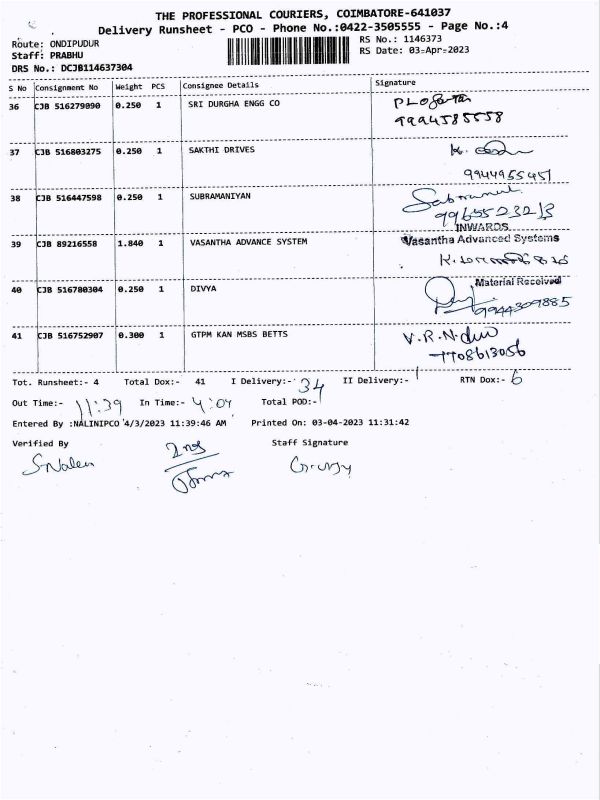 THE PROFESSIONAL COURIERS, COIMBATORE-641037
Delivery Runsheet - PCO - Phone No.:0422-3505555 - Page No.:4
Route: ONDIPUDUR
RS No.: 1146373
Staff: PRABHU
RS Date: 03-Apr-2023
DRS No.: DCJB114637304
S No Consignment No Weight PCS Consignee Details Signature
36 CJB 516279090 0.250 1 SRI DURGHA ENGG CO
9994585558
37 CJB 516803275 0.250 1 SAKTHI DRIVES
9944955451
38 CJB 516447598 0.250 1 SUBRAMANIYAN
INWARDS
39 CJB 89216558 1.840 1 VASANTHA ADVANCE SYSTEM Vasantha Advanced Systems
Material Received
40 CJB 516780304 0.250 1 DIVYA
9944309885
41 CJB 516752907 0.300 1 GTPM KAN MSBS BETTS V.R.N
7708613056
Tot. Runsheet:- 4 Total Dox:- 41 I Delivery:- 34 II Delivery:- RTN Dox:- 6
Out Time:- 11:39 In Time:- 4:04 Total POD:-
Entered By :NALINIPCO 4/3/2023 11:39:46 AM Printed On: 03-04-2023 11:31:42
Verified By Staff Signature